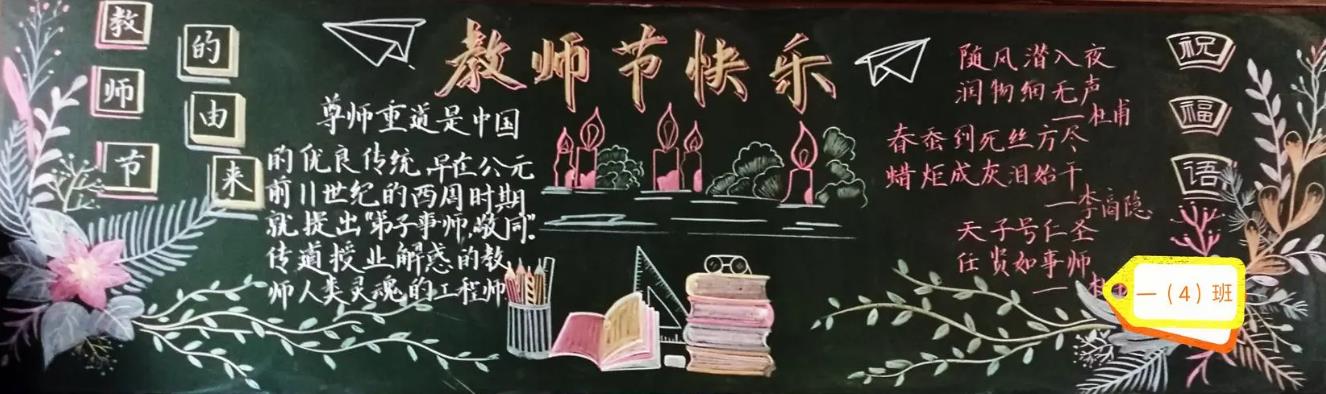 教师节的由来
教师节快乐
尊师重道是中国
的优良传统,早在公元
前11世纪的西周时期
就提出"弟子事师,敬同".
传道授业解惑的教
师人类灵魂的工程师
随风潜入夜
润物细无声
一杜甫
春蚕到死丝方尽
蜡炬成灰泪始干
一李商隐
天子号仁圣
任贤如事师
一
祝福语
一(4)班